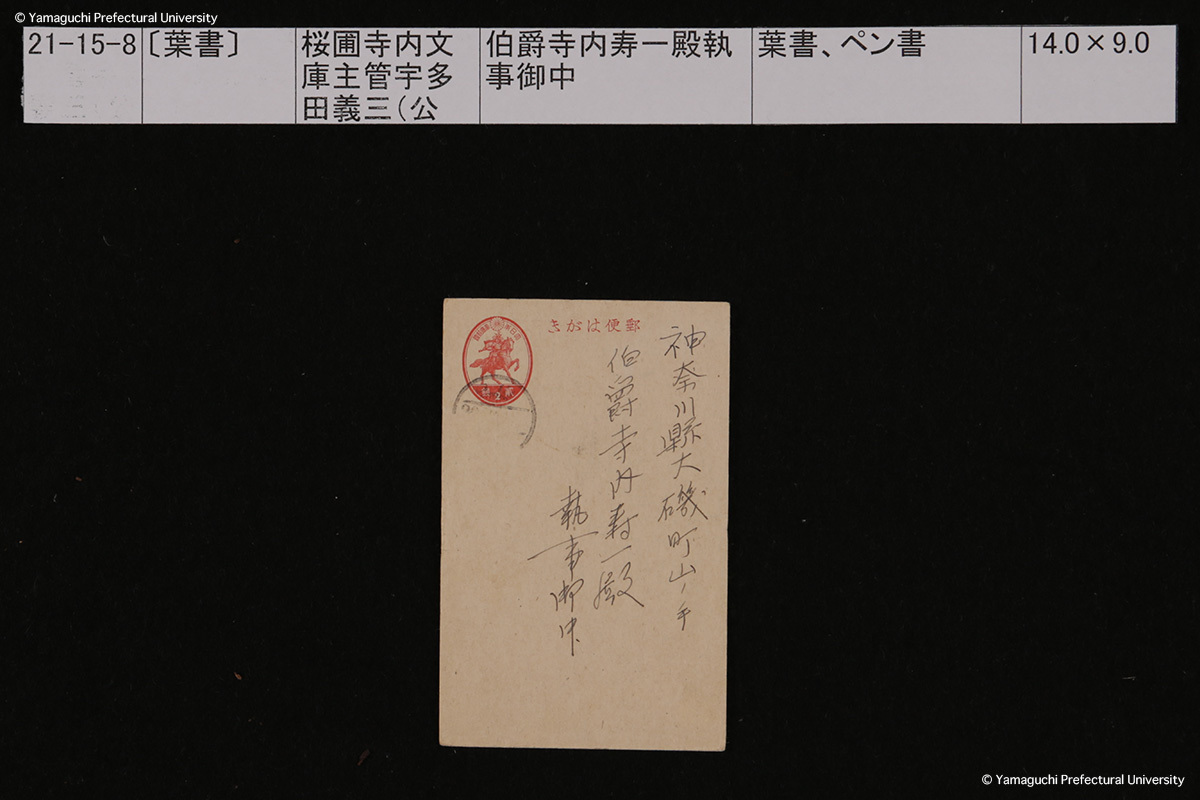 © Yamaguchi Prefectural University
21-15-8
〔葉書〕
桜圃寺内文
庫主管宇多
田義三(公
伯爵寺内寿一殿執
事御中
葉書、ペン書
14.0×9.0
きがは便郵
神奈川縣大磯町山ノ手
伯爵寺内寿一殿
執事御中
© Yamaguchi Prefectural University